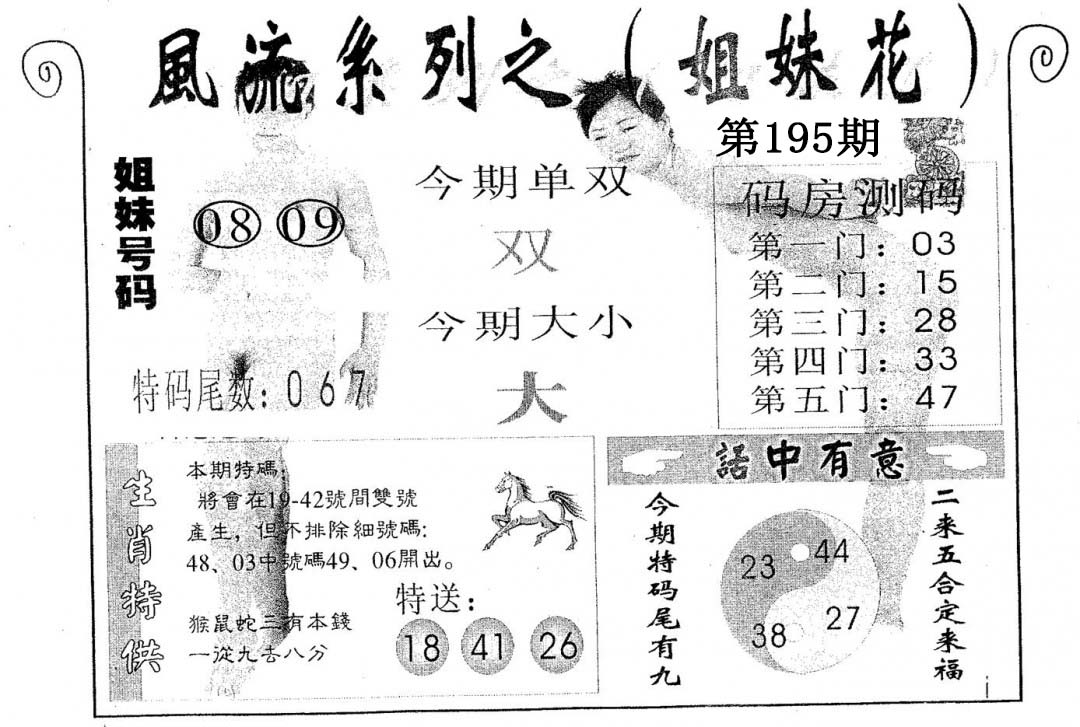 風流系列之（姐妹花）
第195期
姐妹号码
08 09
今期单双
双
今期大小
大
特码尾数：067
码房测码
第一门：03
第二门：15
第三门：28
第四门：33
第五门：47
生肖特供
本期特碼：
將會在19-42號間雙號
產生，但不排除細號碼:
48、03中號碼49、06開出。
猴鼠蛇三有本錢
一從九去八分
特送：
18 41 26
話中有意
今期特码尾有九
23 44
38 27
二来五合定来福